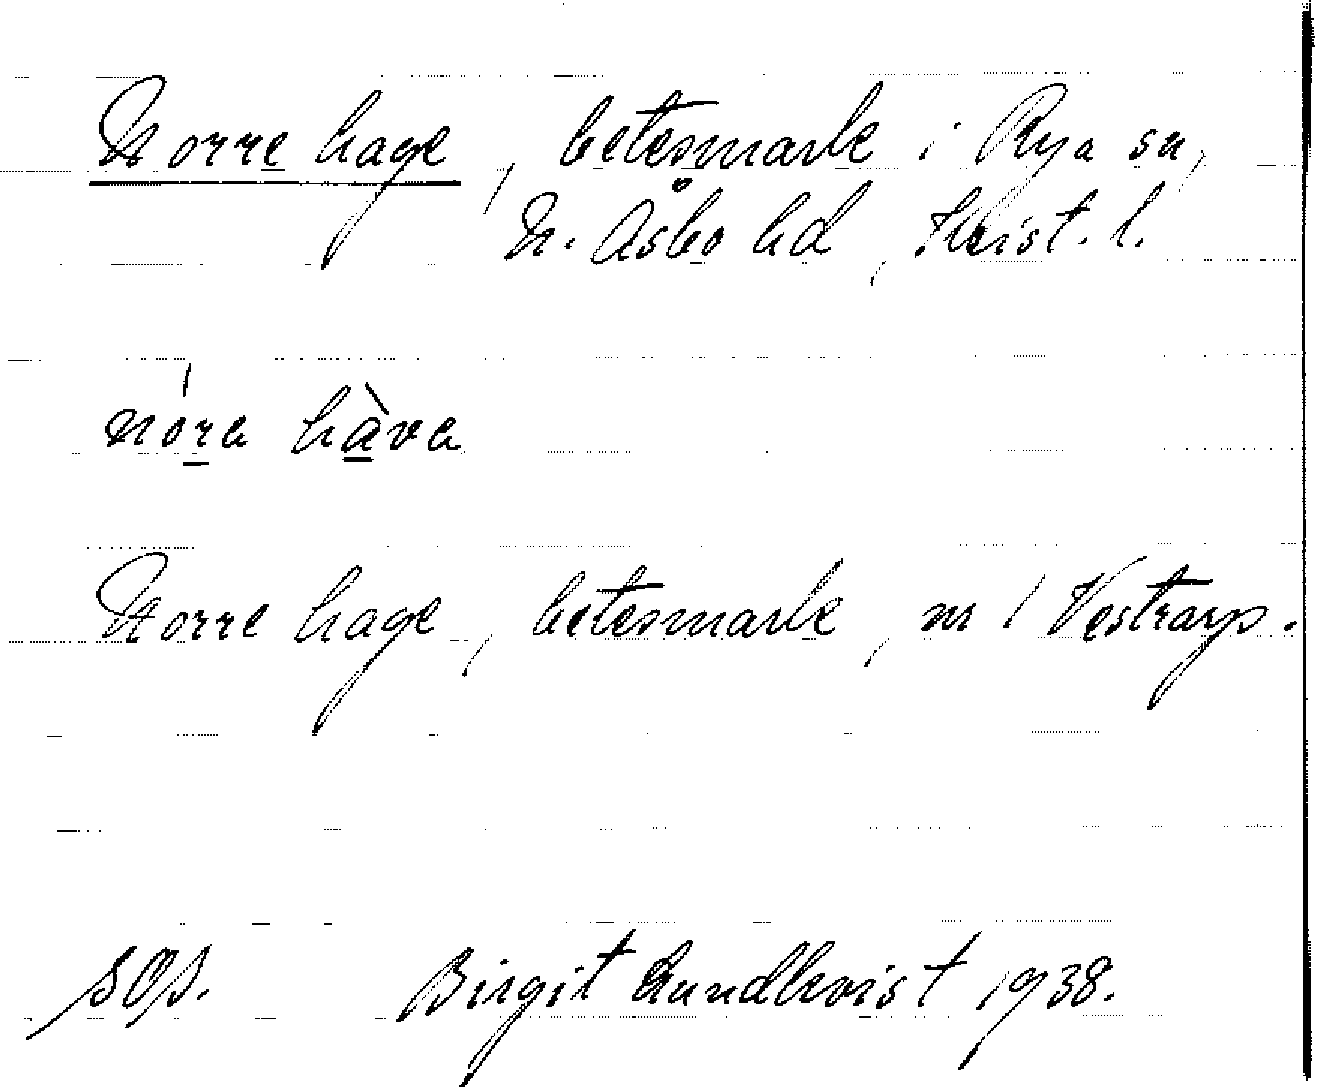 Norre hage, betesmark i Rya sn,
N. Åsbo hd, Krist. l.
nóra hàva
Norre hage, betesmark, nr 1 Vestrarp.
SOS. Birgit Lundkvist 1938.